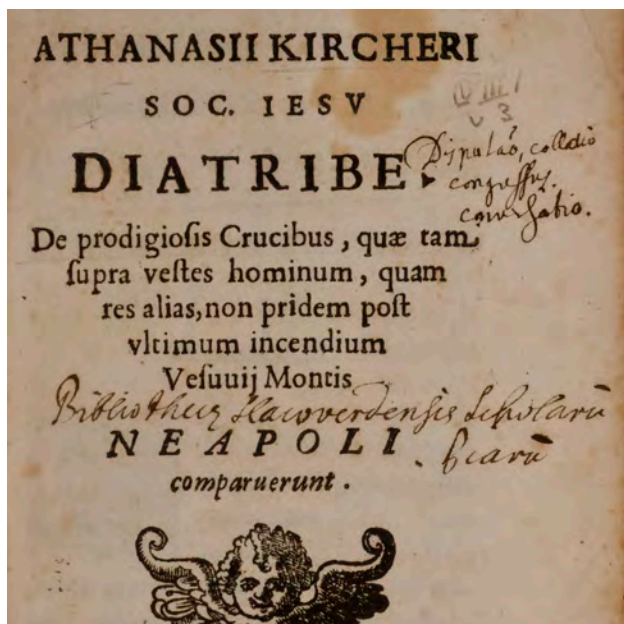 ATHANASII KIRCHERI
SOC. IESV
DIATRIBE
collatio
congressus.
conversatio.
De prodigiosis Crucibus, quæ tam
supra vestes hominum, quam
res alias, non pridem post
vltimum incendium
Vesuuij Montis
Scholarū
NEAPOLI
piarū
comparuerunt.